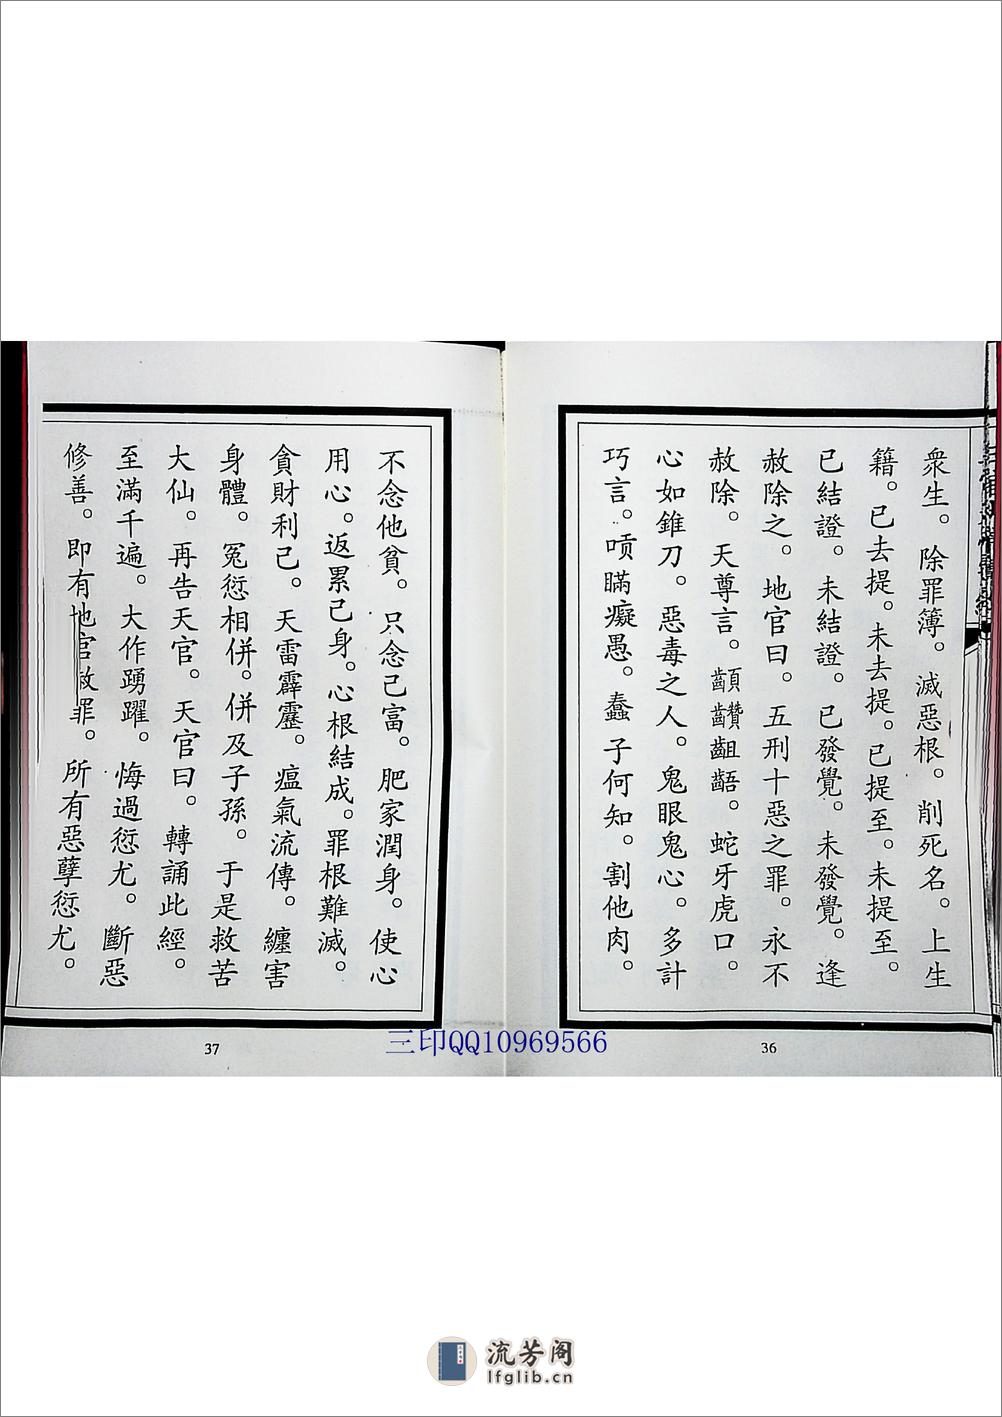 衆生。除罪簿。滅惡根。削死名。上生
籍。已去提。未去提。已提至。未提至。
已結證。未結證。已發覺。未發覺。逢
赦除之。地官曰。五刑十惡之罪。永不
赦除。天尊言。齻䶪齟齬。蛇牙虎口。
心如錐刀。惡毒之人。鬼眼鬼心。多計
巧言。唝瞞癡愚。蠢子何知。割他肉。
36
不念他貧。只念己富。肥家潤身。使心
用心。返累己身。心根結成。罪根難滅。
貪財利己。天雷霹靂。瘟氣流傳。纏害
身體。冤愆相併。併及子孫。于是救苦
大仙。再告天官。天官曰。轉誦此經。
至滿千遍。大作踴躍。悔過愆尤。斷惡
修善。即有地官赦罪。所有惡孽愆尤。
37
三印QQ10969566
流芳阁
lfglib.cn